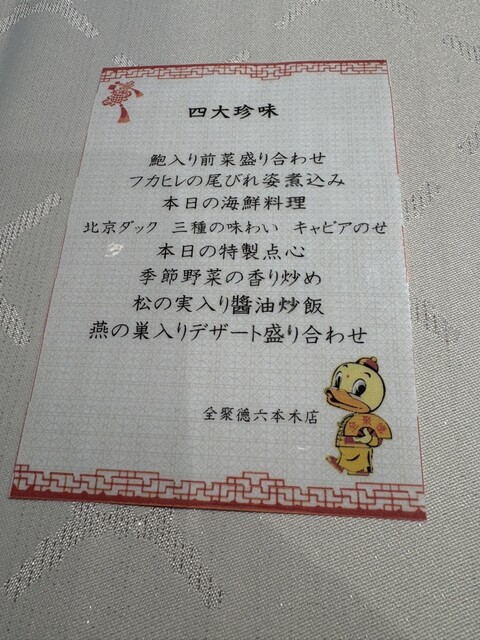 四大珍味
鮑入り前菜盛り合わせ
フカヒレの尾びれ姿煮込み
本日の海鮮料理
北京ダック 三種の味わい キャビアのせ
本日の特製点心
季節野菜の香り炒め
松の実入り醬油炒飯
燕の巣入りデザート盛り合わせ
全聚徳六本木店